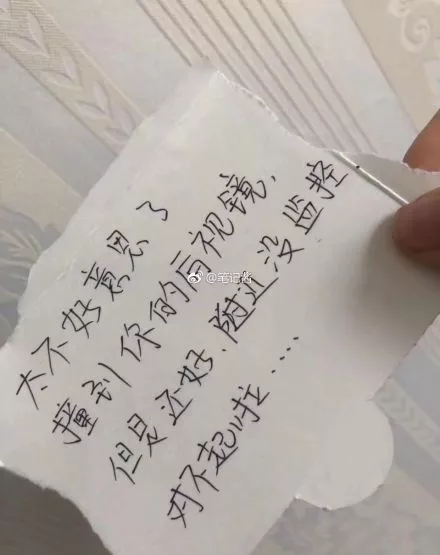 太不好意思了
撞到你的后视镜,
但是还好.附近没监控
对不起啦....
@笔记酱